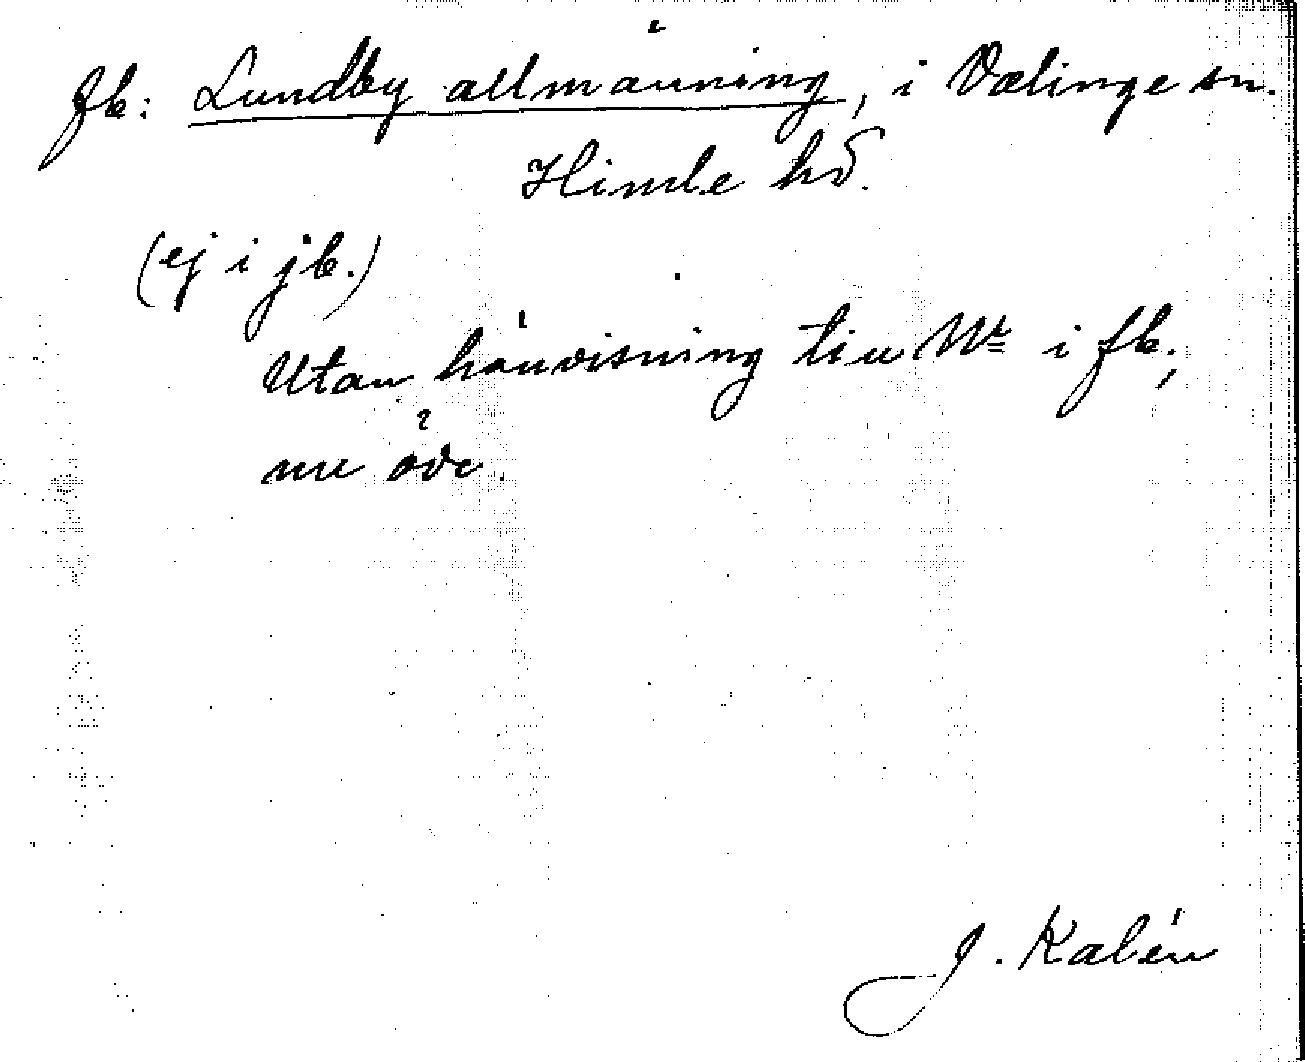 fb: Lundby allmänning, i Valinge sn.
Himle hd.
(ej i jb.)
Utan hänvisning till Nr i fb.;
nu öde.
J. Kalén